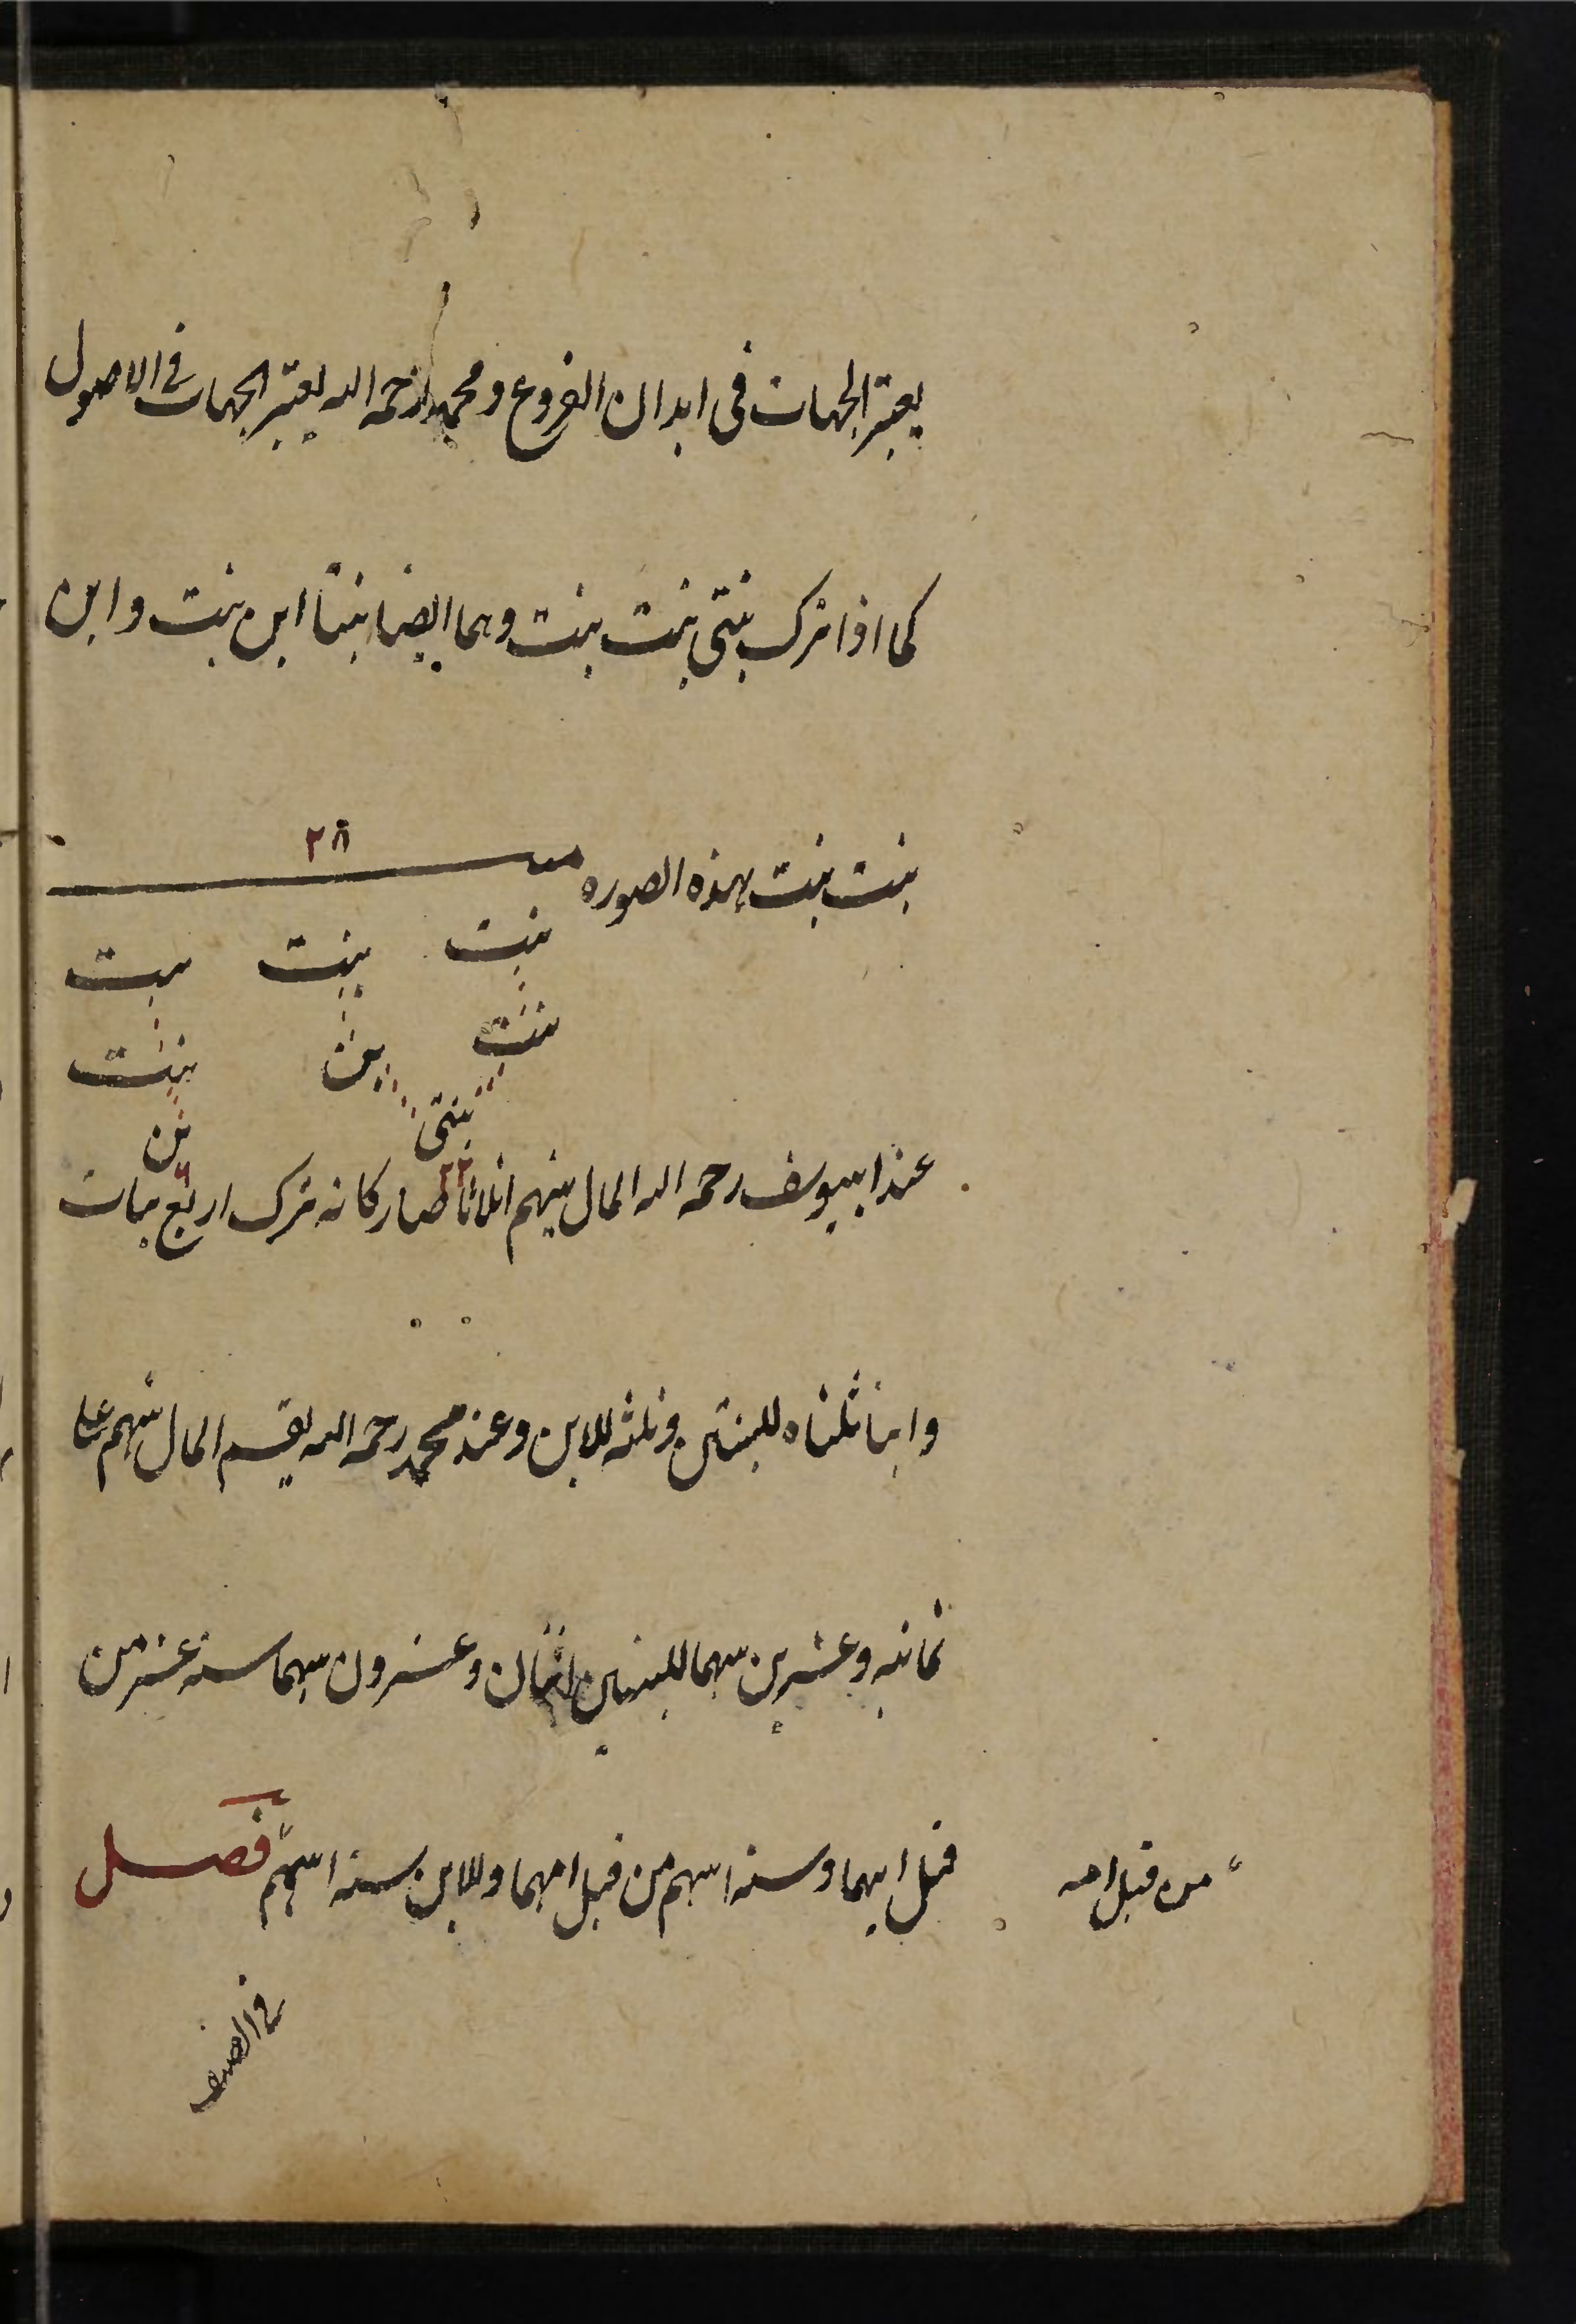 يعتبر الجهات فى ابدان الفروع ومحمد رحمه الله يعتبر الجهات فى الاصول
كما اذا ترك بنتى بنت بنت وهما ايضا بنتا ابن بنت وابن
بنت بنت بهذه الصوره
٢٨
بنت بنت بنت
بنت ابن بنت
بنتى ابن
٢٢ ٦
عند ابييوسف رحمه الله المال بينهم اثلاثا صار كانه ترك اربع بنات
وابنا ثلثاه للبنتين وثلثه للابن وعند محمد رحمه الله يقسم المال بينهم على
ثمانيه وعشرين سهما للبنتين اثنان وعشرون سهما سته عشر من
قبل ابيهما وسته اسهم من قبل امهما وللابن سته اسهم فصل
من قبل امه
فى الصنف